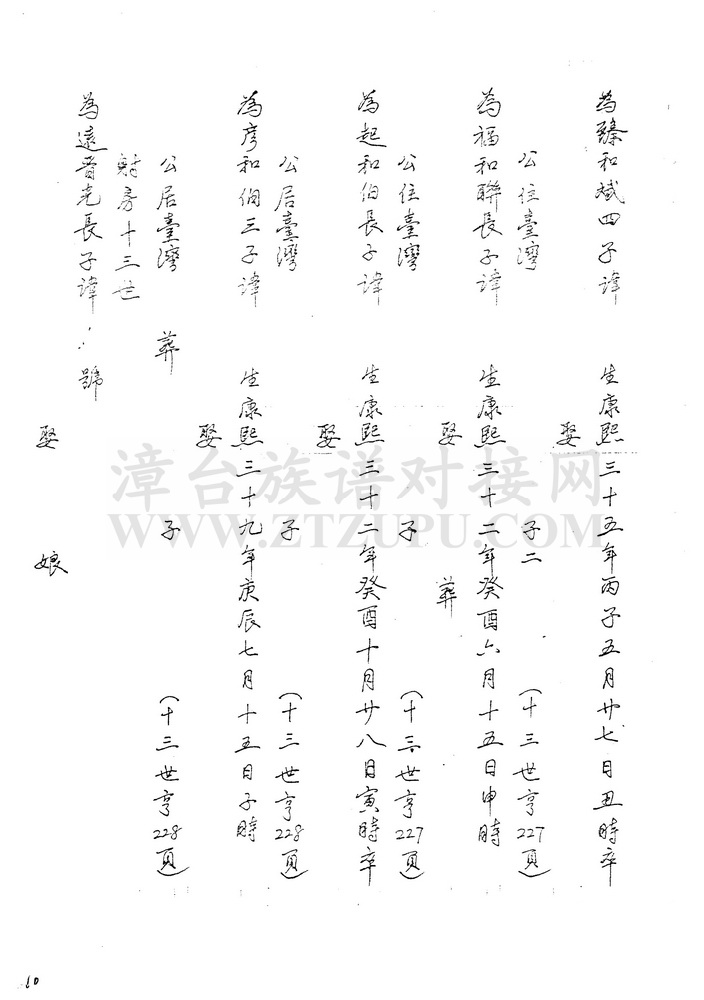 為臻和斌四子諱 生康熙三十五年丙子五月廿七日丑時卒
娶
公住臺灣 子二 (十三世亨227頁)
為福和聯長子諱 生康熙三十二年癸酉六月十五日申時
娶 葬
公住臺灣 子 (十三世亨227頁)
為起和伯長子諱 生康熙三十二年癸酉十月廿八日寅時卒
娶
公居臺灣 子 (十三世亨228頁)
為彦和伺三子諱 生康熙三十九年庚辰七月十五日子時
娶
公居臺灣 葬 子 (十三世亨228頁)
射房十三世
為遠晋光長子諱 號
娶 娘
漳台族谱对接网
WWW.ZTZUPU.COM
10